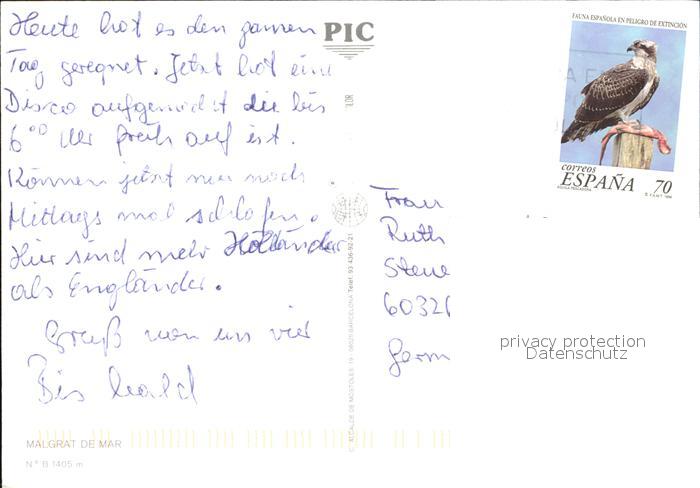 Heute hat es den ganzen
Tag geregnet. Jetzt hat eine
Disco aufgemacht die bis
6⁰⁰ Uhr früh auf ist.
Können jetzt nur noch
Mittags mal schlafen.
Hier sind mehr Holländer
als Engländer.
Gruß von uns vier
Bis bald
MALGRAT DE MAR
N° B 1405 m
PIC
C. ALCALDE DE MOSTOLES 19 - 08025 BARCELONA Telef. 93 436 62 21
FAUNA ESPAÑOLA EN PELIGRO DE EXTINCIÓN
correos
ESPAÑA 70
AGUILA PESCADORA
Frau
Ruth
Steue
6032
Germ
privacy protection
Datenschutz